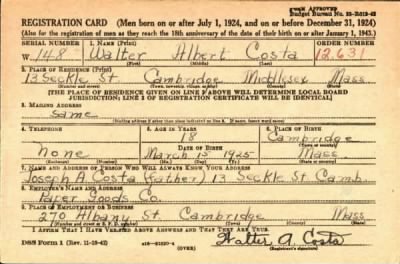 FORM APPROVED
Budget Bureau No. 33-R012-42
REGISTRATION CARD (Men born on or after July 1, 1924, and on or before December 31, 1924)
(Also for the registration of men as they reach the 18th anniversary of the date of their birth on or after January 1, 1943.)
SERIAL NUMBER 1. NAME (Print) ORDER NUMBER
W 148 Walter Albert Costa 12,631
(First) (Middle) (Last)
2. PLACE OF RESIDENCE (Print)
13 Seckle St. Cambridge Middlesex Mass
(Number and street) (Town, township, village, or city) (County) (State)
[THE PLACE OF RESIDENCE GIVEN ON LINE 2 ABOVE WILL DETERMINE LOCAL BOARD
JURISDICTION; LINE 2 OF REGISTRATION CERTIFICATE WILL BE IDENTICAL]
3. MAILING ADDRESS
Same
(Mailing address if other than place indicated on line 2. If same, insert word same)
4. TELEPHONE 5. AGE IN YEARS 6. PLACE OF BIRTH
18 Cambridge
DATE OF BIRTH (Town or county)
None March 15 1925 Mass
(Exchange) (Number) (Mo.) (Day) (Yr.) (State or country)
7. NAME AND ADDRESS OF PERSON WHO WILL ALWAYS KNOW YOUR ADDRESS
Joseph A. Costa (father) 13 Seckle St. Camb.
8. EMPLOYER'S NAME AND ADDRESS
Paper Goods Co.
9. PLACE OF EMPLOYMENT OR BUSINESS
270 Albany St. Cambridge Mass
(Number and street or R. F. D. number) (Town) (County) (State)
I AFFIRM THAT I HAVE VERIFIED ABOVE ANSWERS AND THAT THEY ARE TRUE.
DSS Form 1 (Rev. 11-16-42) (OVER) Walter A. Costa
(Registrant's signature)